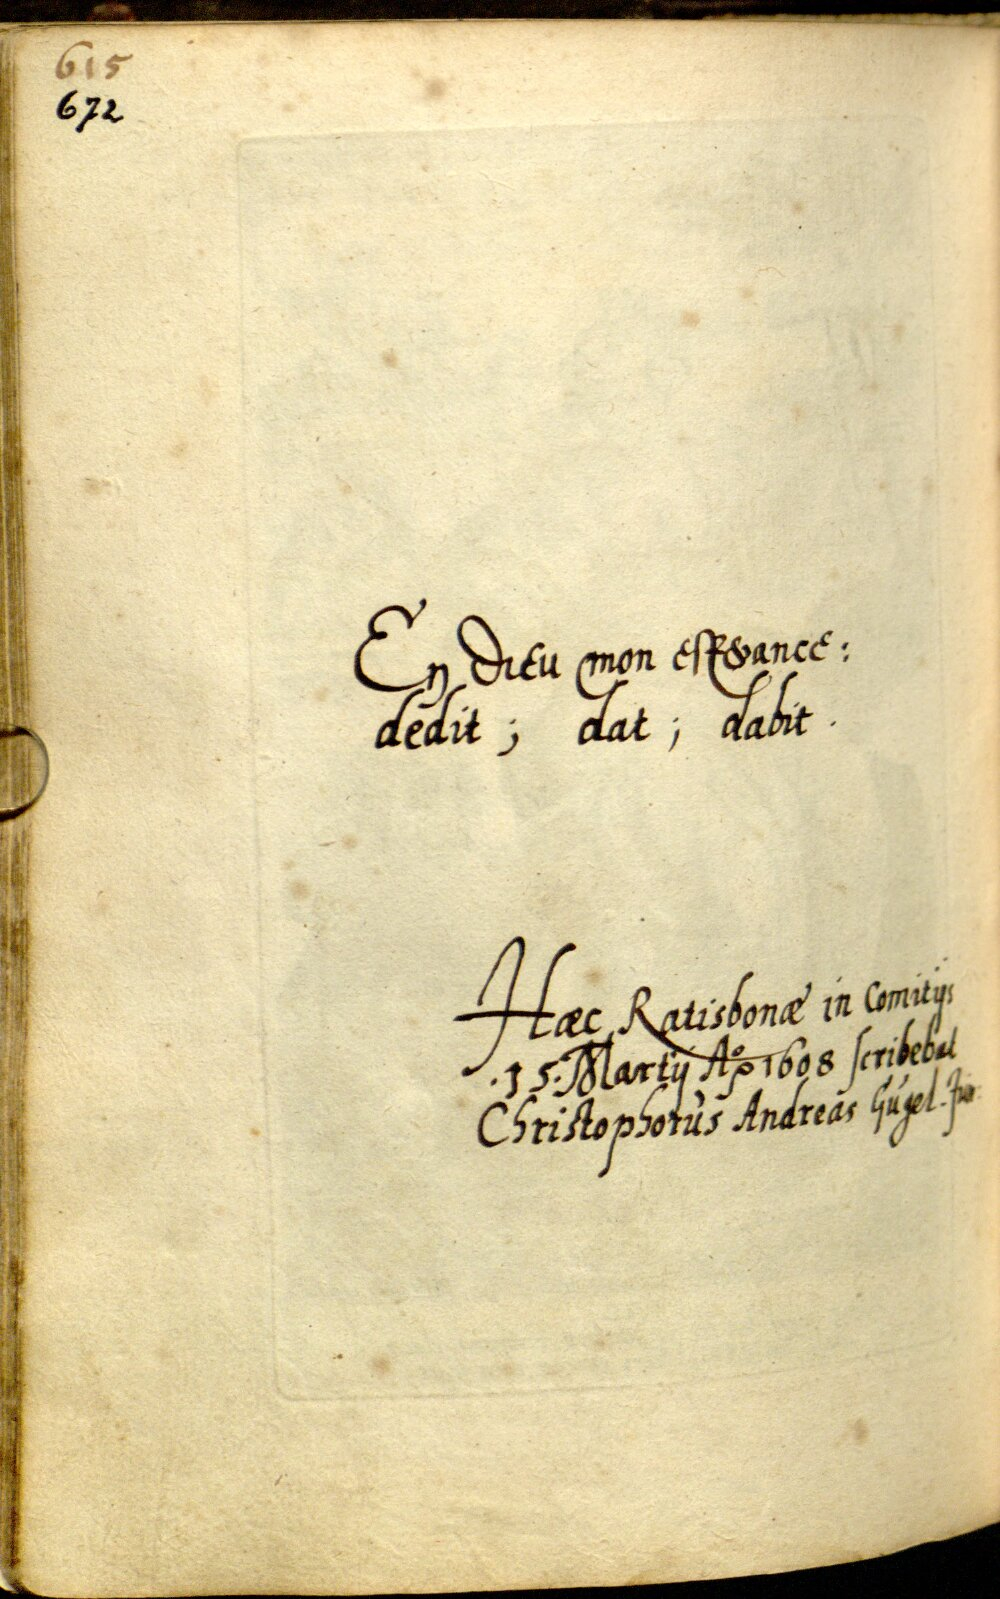 615
672
En Dieu mon esperance:
dedit; dat; dabit.
Hæc Ratisbonæ in Comitijs
.15. Martij Aº 1608 scribebat
Christophorus Andreas Gugel. Jun.